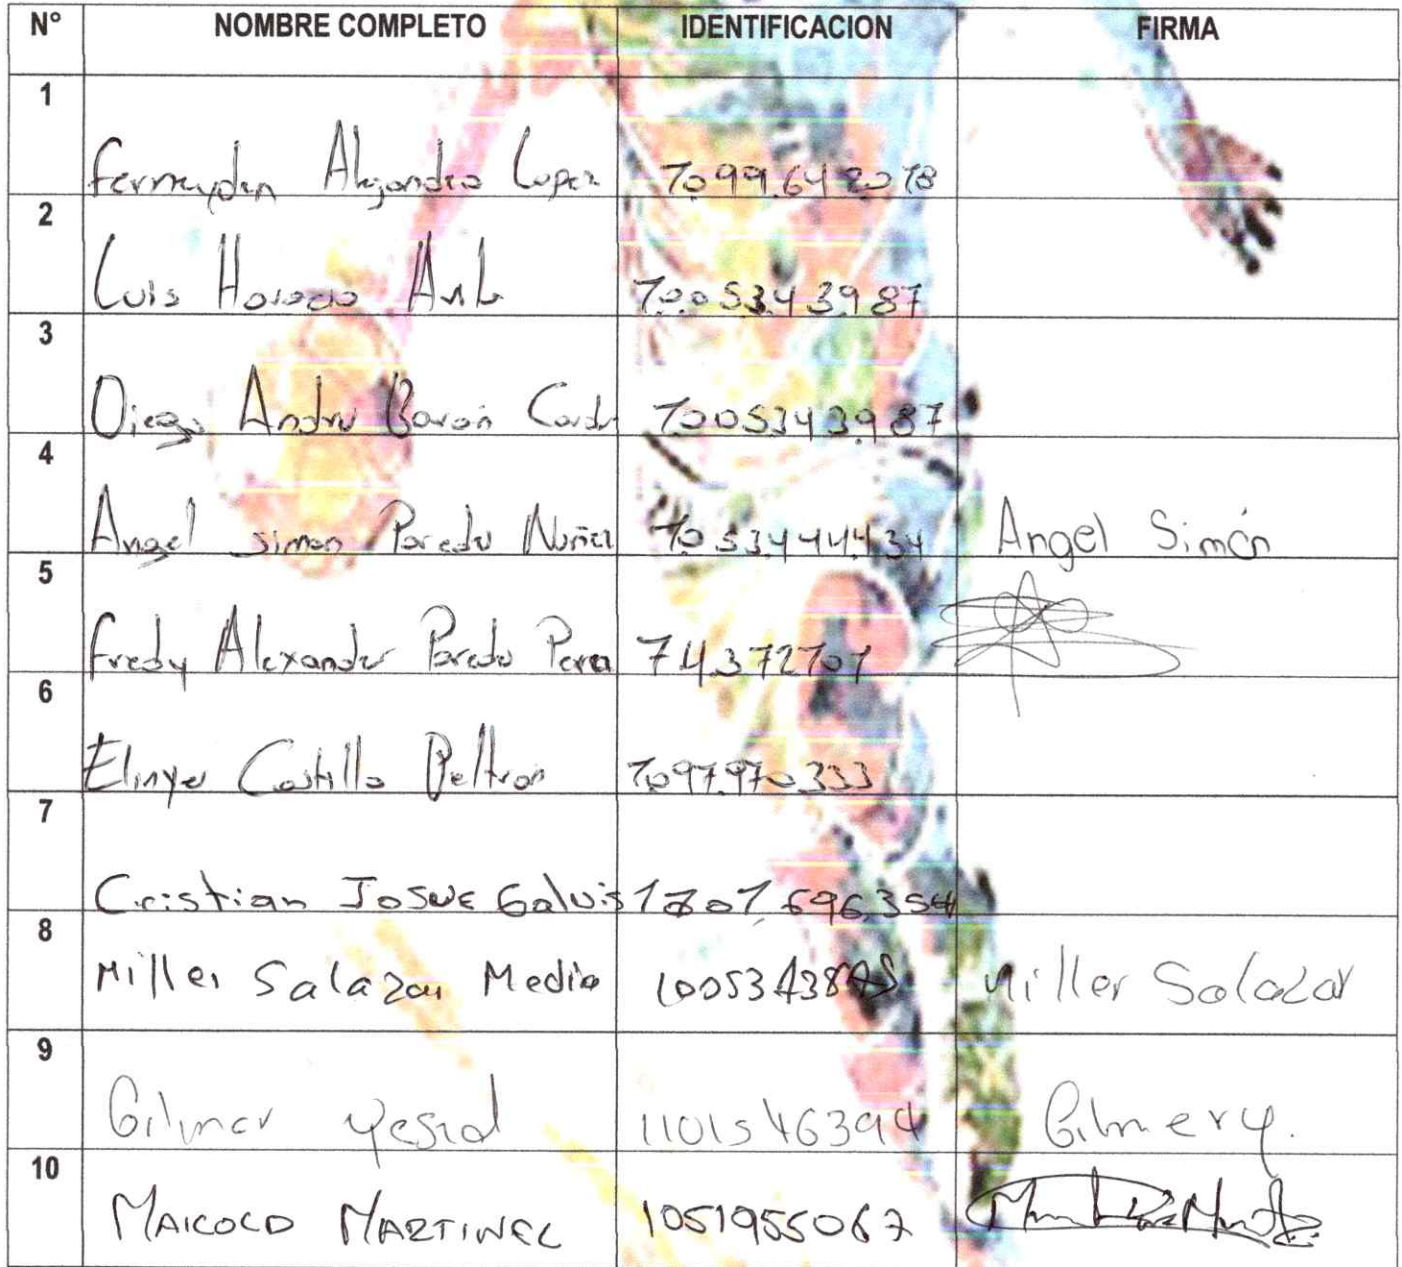 N° NOMBRE COMPLETO IDENTIFICACION FIRMA
1 Fermeyden Alejandro Lopez 1099642018
2 Luis Horacio 1005343987
3 Diego Andres Baron 1005343987
4 Angel Simon Paredes Nuñez 1053444434 Angel Simón
5 Fredy Alexander Paredes Perez 74372101
6 Elinyer Castillo Beltran 1097970333
7 Cristian JosuE Galvis
8 Miller Salazar Medio Miller Salazar
9 Gilmer yesid Gilmery.
10 MAICOLD MARTINEZ 1051955067